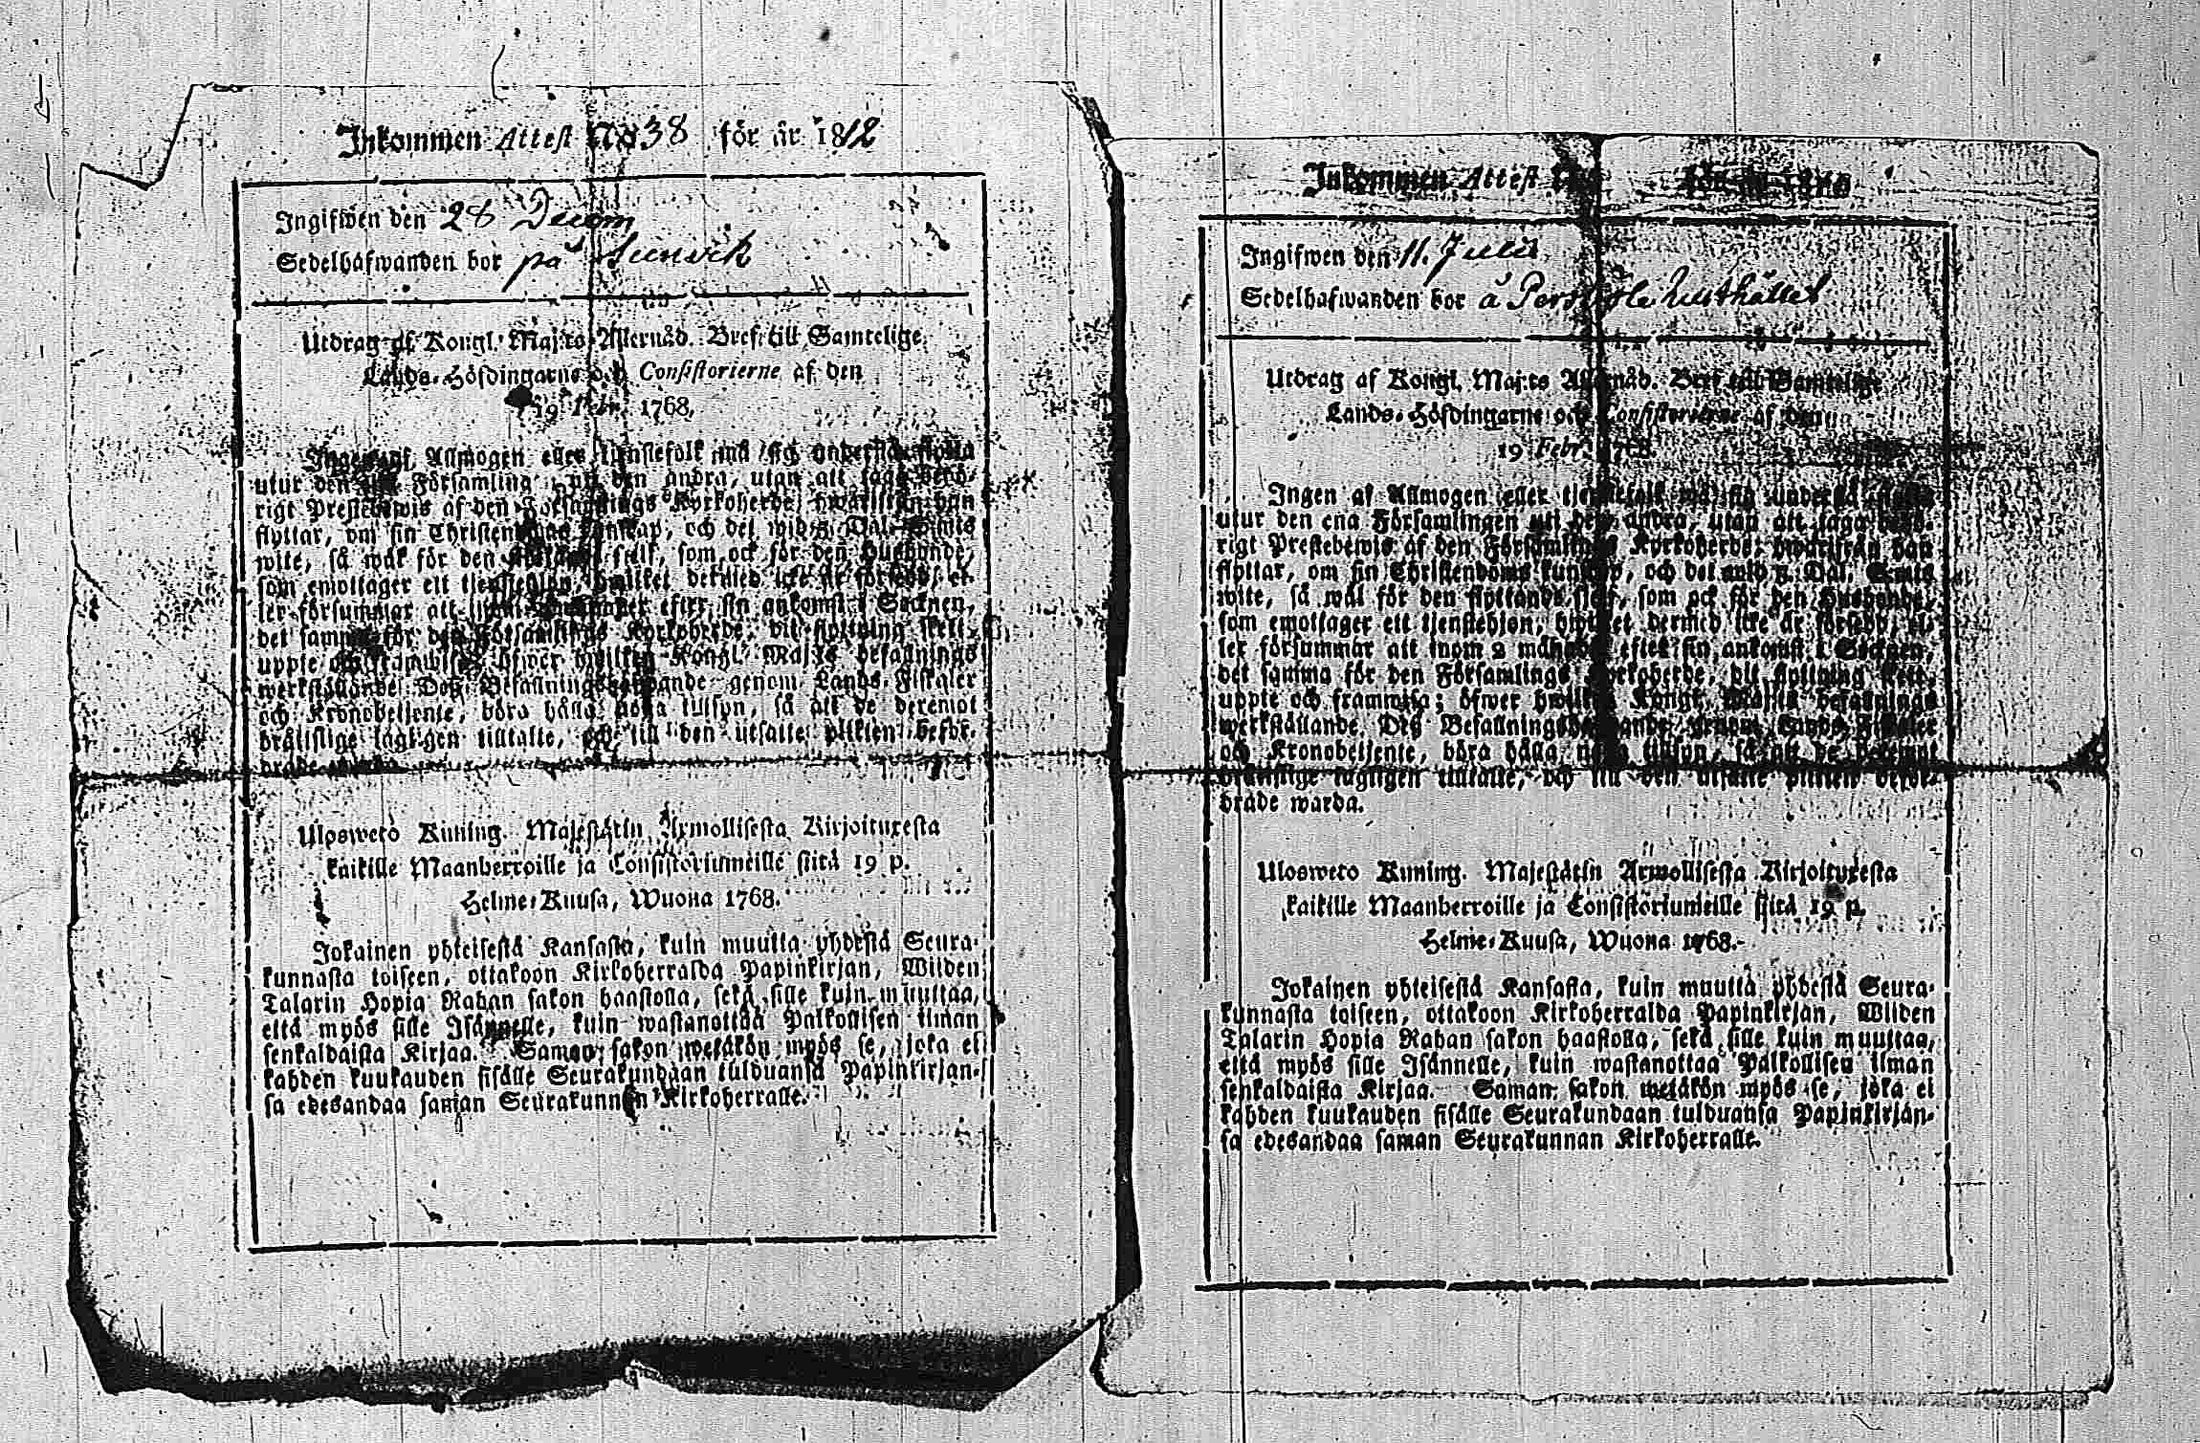 Inkommen Attest No 38 för år 1812
Ingifwen den 28 Decem
Sedelhafwanden bor på Sunvik
Utdrag af Kongl. Maj:ts Allernåd. Bref till Samtelige
Lands-Höfdingarne och Consistorierne af den
19 Febr. 1768.
Allmogen eller tjenstefolk må sig understå flytta
utur den ena Församling uti den andra, utan att taga behö-
rigt Prestebewis af den Församlings Kyrkoherde, hwarifrån han
flyttar, om sin Christendoms kunskap, och det wid 5 Dal. S:mts
wite, så wäl för den flyttande sielf, som ock för den Husbonde,
som emottager ett tjenstehjon, hwilket dermed icke är försedt, el-
ler försummar att inom månader efter sin ankomst i Socknen,
det samma för den Församlings Kyrkoherde, dit flyttning skett,
uppte och framwisa; öfwer hwilket Kongl. Maj:ts befallnings
werkställande Deß Befallningshafwande genom Lands-Fiskaler
och Kronobetjente, böra hålla noga tillsyn, så att de deremot
bråttslige lagligen tilltalte, och till den utsatte plikten befor-
drade
Ulosweto Kuning. Majestätin Armollisesta Kirjoituxesta
kaikille Maanherroille ja Consistoriumeille siitä 19 p.
Helme-Kuusa, Wuona 1768.
Jokainen yhteisestä Kansasta, kuin muutta yhdestä Seura-
kunnasta toiseen, ottakoon Kirkoherralda Papinkirjan, Wiiden
Talarin Hopia Rahan sakon haastolla, sekä sille kuin muuttaa,
että myös sille Isännelle, kuin wastanottaa Palkollisen ilman
senkaldaista Kirjaa. Saman sakon wetäkön myös se, joka ei
kahden kuukauden sisälle Seurakundaan tulduansa Papinkirjan-
sa edesandaa saman Seurakunnan Kirkoherralle.
Inkommen Attest
Ingifwen den 11. Julii
Sedelhafwanden bor å Rusthållet
Utdrag af Kongl. Maj:ts Allernåd. Bref till Samtelige
Lands-Höfdingarne och Consistorierne af den
19 Febr. 1768.
Ingen af Allmogen eller tjenstefolk må sig understå flytta
utur den ena Församlingen uti den andra, utan att taga behö-
rigt Prestebewis af den Församlings Kyrkoherde, hwarifrån han
flyttar, om sin Christendoms kunskap, och det wid 5 Dal. S:mts
wite, så wäl för den flyttande sielf, som ock för den Husbonde,
som emottager ett tjenstehjon, hwilket dermed icke är försedt, el-
ler försummar att inom 2 månader efter sin ankomst i Socknen,
det samma för den Församlings Kyrkoherde, dit flyttning skett,
uppte och framwisa; öfwer hwilket Kongl. Maj:ts befallnings
werkställande Deß Befallningshafwande genom Lands-Fiskaler
och Kronobetjente, böra hålla noga tillsyn, så att de deremot
bråttslige lagligen tilltalte, och till den utsatte plikten befor-
drade warda.
Ulosweto Kuning. Majestätin Armollisesta Kirjoituxesta
kaikille Maanherroille ja Consistoriumeille siitä 19 p.
Helme-Kuusa, Wuona 1768.
Jokainen yhteisestä Kansasta, kuin muutta yhdestä Seura-
kunnasta toiseen, ottakoon Kirkoherralda Papinkirjan, Wiiden
Talarin Hopia Rahan sakon haastolla, sekä sille kuin muuttaa,
että myös sille Isännelle, kuin wastanottaa Palkollisen ilman
senkaldaista Kirjaa. Saman sakon wetäkön myös se, joka ei
kahden kuukauden sisälle Seurakundaan tulduansa Papinkirjan-
sa edesandaa saman Seurakunnan Kirkoherralle.